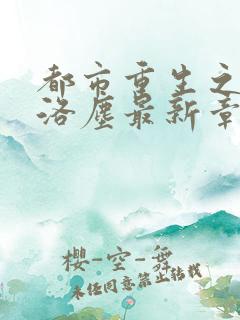 都市重生之
洛尘最新章
櫻-空-舞
未经同意禁止转载